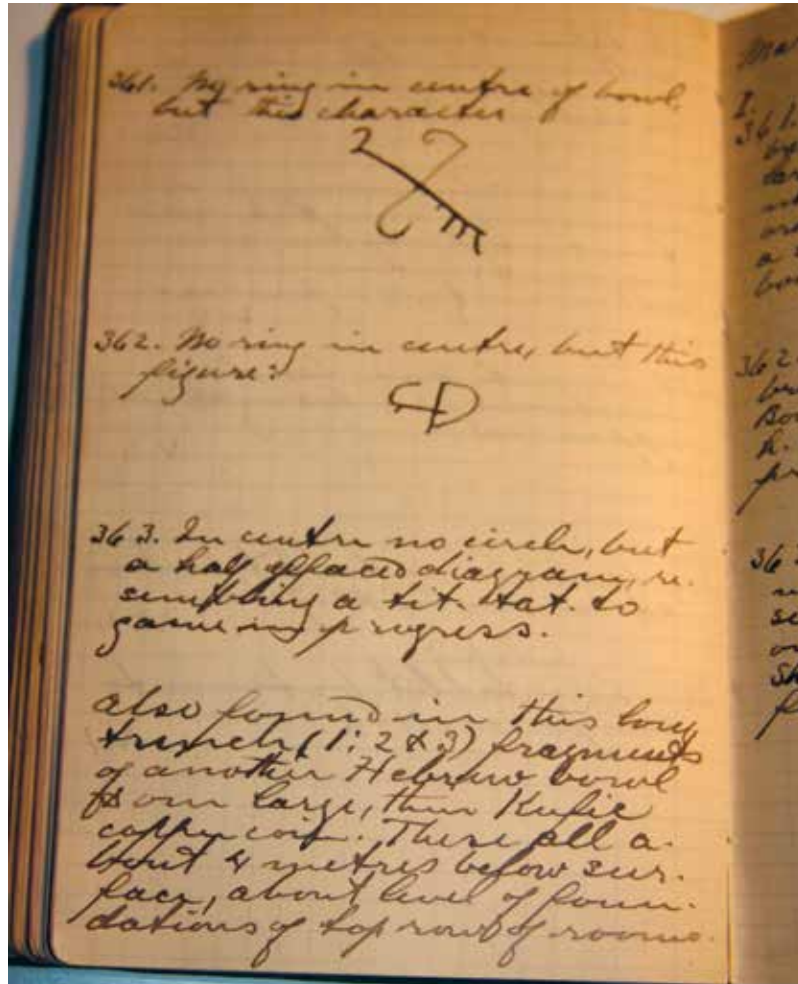 361. No ring in centre of bowl,
but this character
362. No ring in centre, but this
figure:
363. In centre no circle, but
a half effaced diagram, re-
sembling a tit. tat. to
game in progress.
also found in this long
trench (1: 2 & 3) fragments
of another Hebrew bowl
large, thin Kufic
copper coin. These all a-
bout 4 metres below sur-
face, about level of foun-
dations of top row of rooms.
I.
361.
362
36